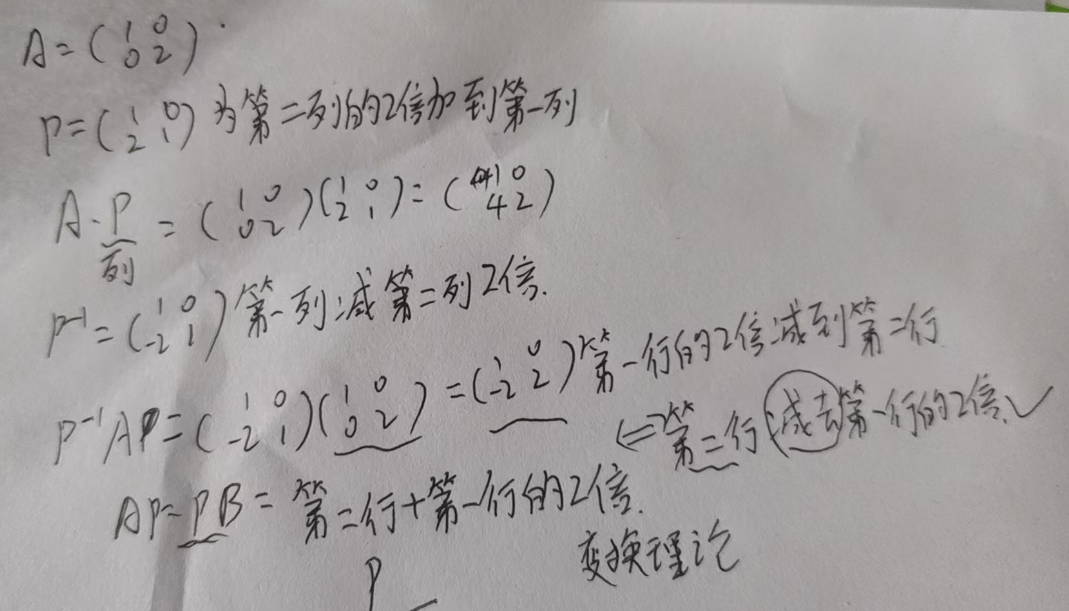 A=(1 0 0 2)
P=(1 0 2 1)为第二列的2倍加到第一列
A·P=(1 0 0 2)(1 0 2 1)=(1 0 4 2)
列
P⁻¹=(1 0 -2 1)第一列减第二列2倍.
P⁻¹AP=(1 0 -2 1)(1 0 0 2)=(1 0 -2 2)第一行的2倍减到第二行
⇐第二行减去第一行的2倍.✓
AP=PB=第二行+第一行的2倍.
变换理论
P